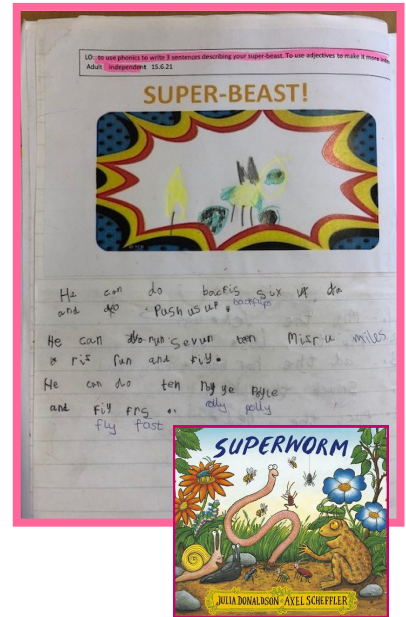 LO: to use phonics to write 3 sentences describing your super-beast. To use adjectives to make it more
Adult independent 15.6.21
SUPER-BEAST!
He can do bacfis six
and do Push us up. backflips
He can do run sevun ten miles
run and fiy.
He can do ten
and fiy
rolly polly
fly fast
SUPERWORM
JULIA DONALDSON AXEL SCHEFFLER